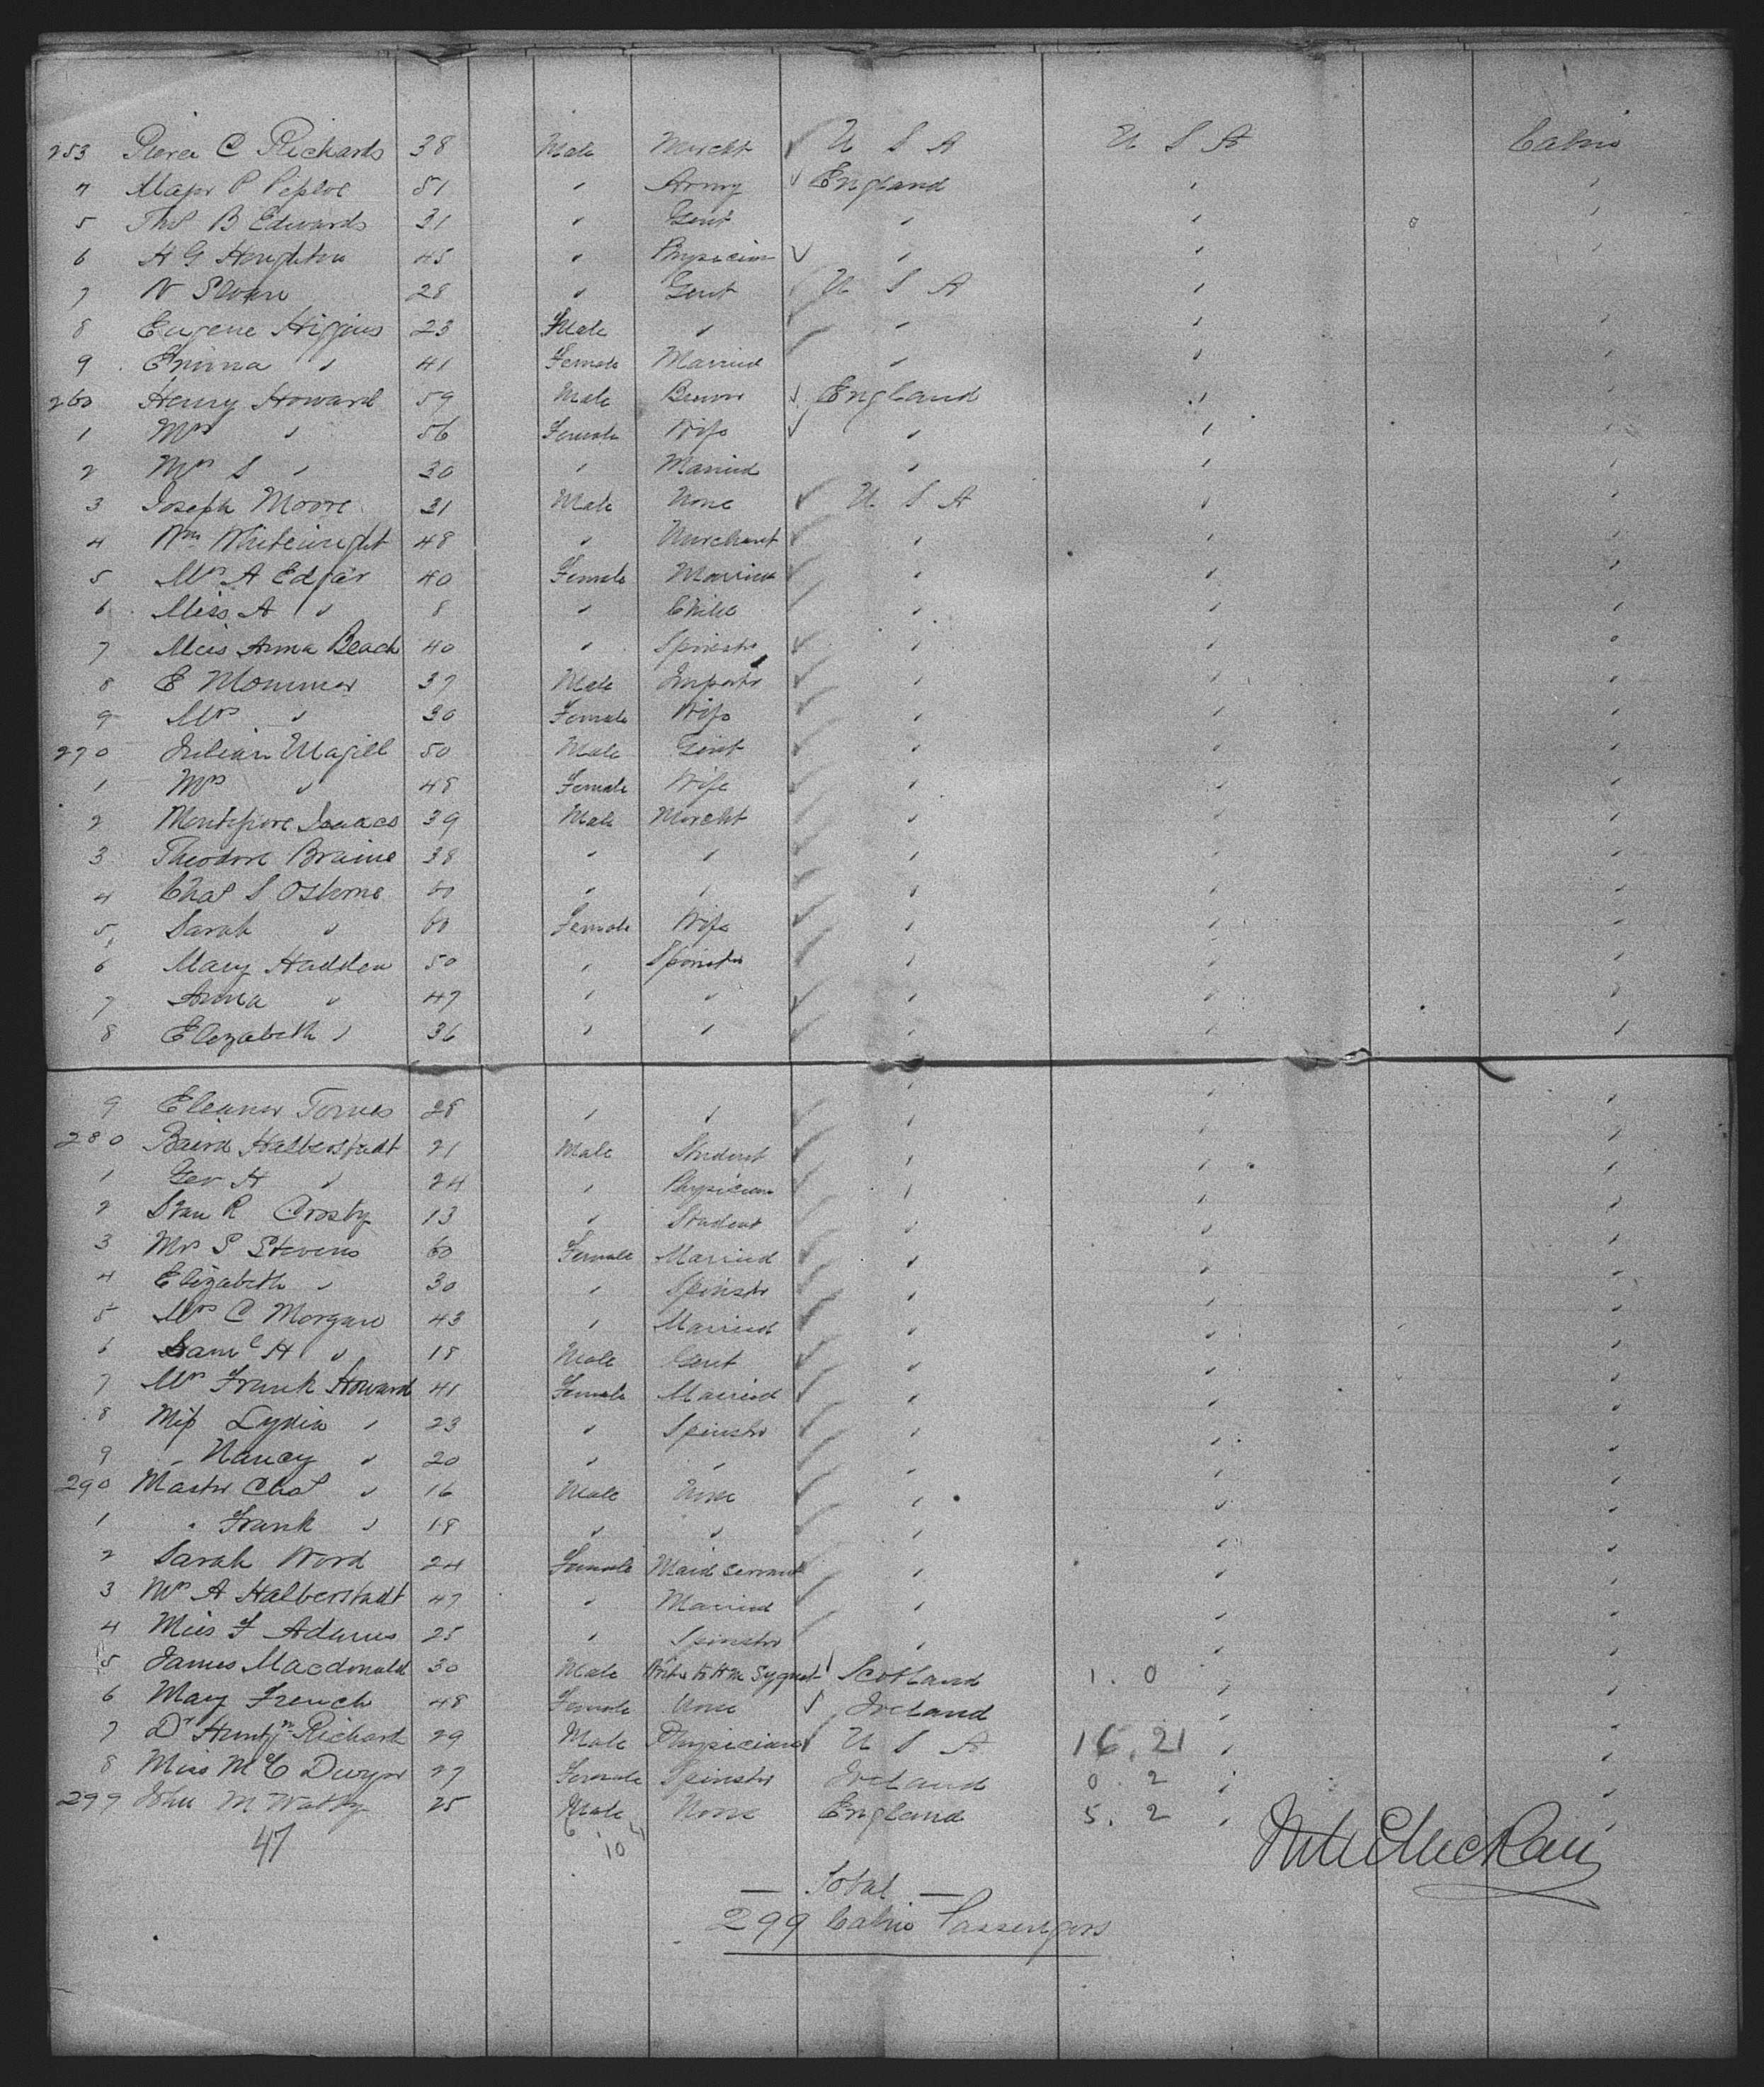 253 Pierce C Richards 38 Male Mercht U S A U S A Cabin
4 Major P Peploe 51 " Army England " "
5 Thos B Edwards 31 " Gent " " "
6 H G Houghton 45 " Physician " " "
7 N Sloan 28 " Gent U S A "
8 Eugene Higgins 23 Male " " " "
9 Emma " 41 Female Married " " "
260 Henry Howard 59 Male Brewer England " "
1 Mrs " 56 Female Wife " " "
2 Mrs S " 30 " Married " " "
3 Joseph Moore 31 Male None U S A " "
4 Wm Whitewright 48 " Merchant " " "
5 Mrs A Edgar 40 Female Married " " "
6 Miss A " 8 " Child " " "
7 Miss Anna Beach 40 " Spinstr " " "
8 E Mommer 37 Male Importr " " "
9 Mrs " 30 Female Wife " " "
270 Julian Magill 50 Male Gent " " "
1 Mrs " 48 Female Wife " " "
2 Montefiore Isaacs 39 Male Mercht " " "
3 Theodore Braine 38 " " " " "
4 Chas S Osborne 60 " " " " "
5 Sarah " 60 Female Wife " " "
6 Mary Hadden 50 " Spinstr " " "
7 Anna " 47 " " " " "
8 Elizabeth " 36 " " " " "
9 Eleanor Torres 28 " " " " "
280 Baird Halberstadt 21 Male Student " " "
1 Geo H " 24 " Physician " " "
2 Stan R Crosby 13 " Student " " "
3 Mrs S Stevens 60 Female Married " " "
4 Elizabeth " 30 " Spinstr " " "
5 Mrs C Morgan 43 " Married " " "
6 Saml H " 18 Male Gent " " "
7 Mrs Frank Howard 41 Female Married " " "
8 Miss Lydia " 23 " Spinstr " " "
9 " Nancy " 20 " " " " "
290 Mastr Chas " 16 Male None " " "
1 " Frank " 18 " " " " "
2 Sarah Word 24 Female Maid Servant " " "
3 Mrs A Halberstadt 47 " Married " " "
4 Miss F Adams 25 " Spinstr " " "
5 James Macdonald 30 Male Writr to H M Sygnet Scotland 1. 0 " "
6 Mary French 48 Female None Ireland " "
7 Dr Huntgn Richards 29 Male Physician U S A 16. 21 " "
8 Miss M C Dwyer 27 Female Spinstr Ireland 0. 2 " "
299 John M Watty 25 Male None England 5. 2 " "
47
10
— Total —
299 Cabin Passengers